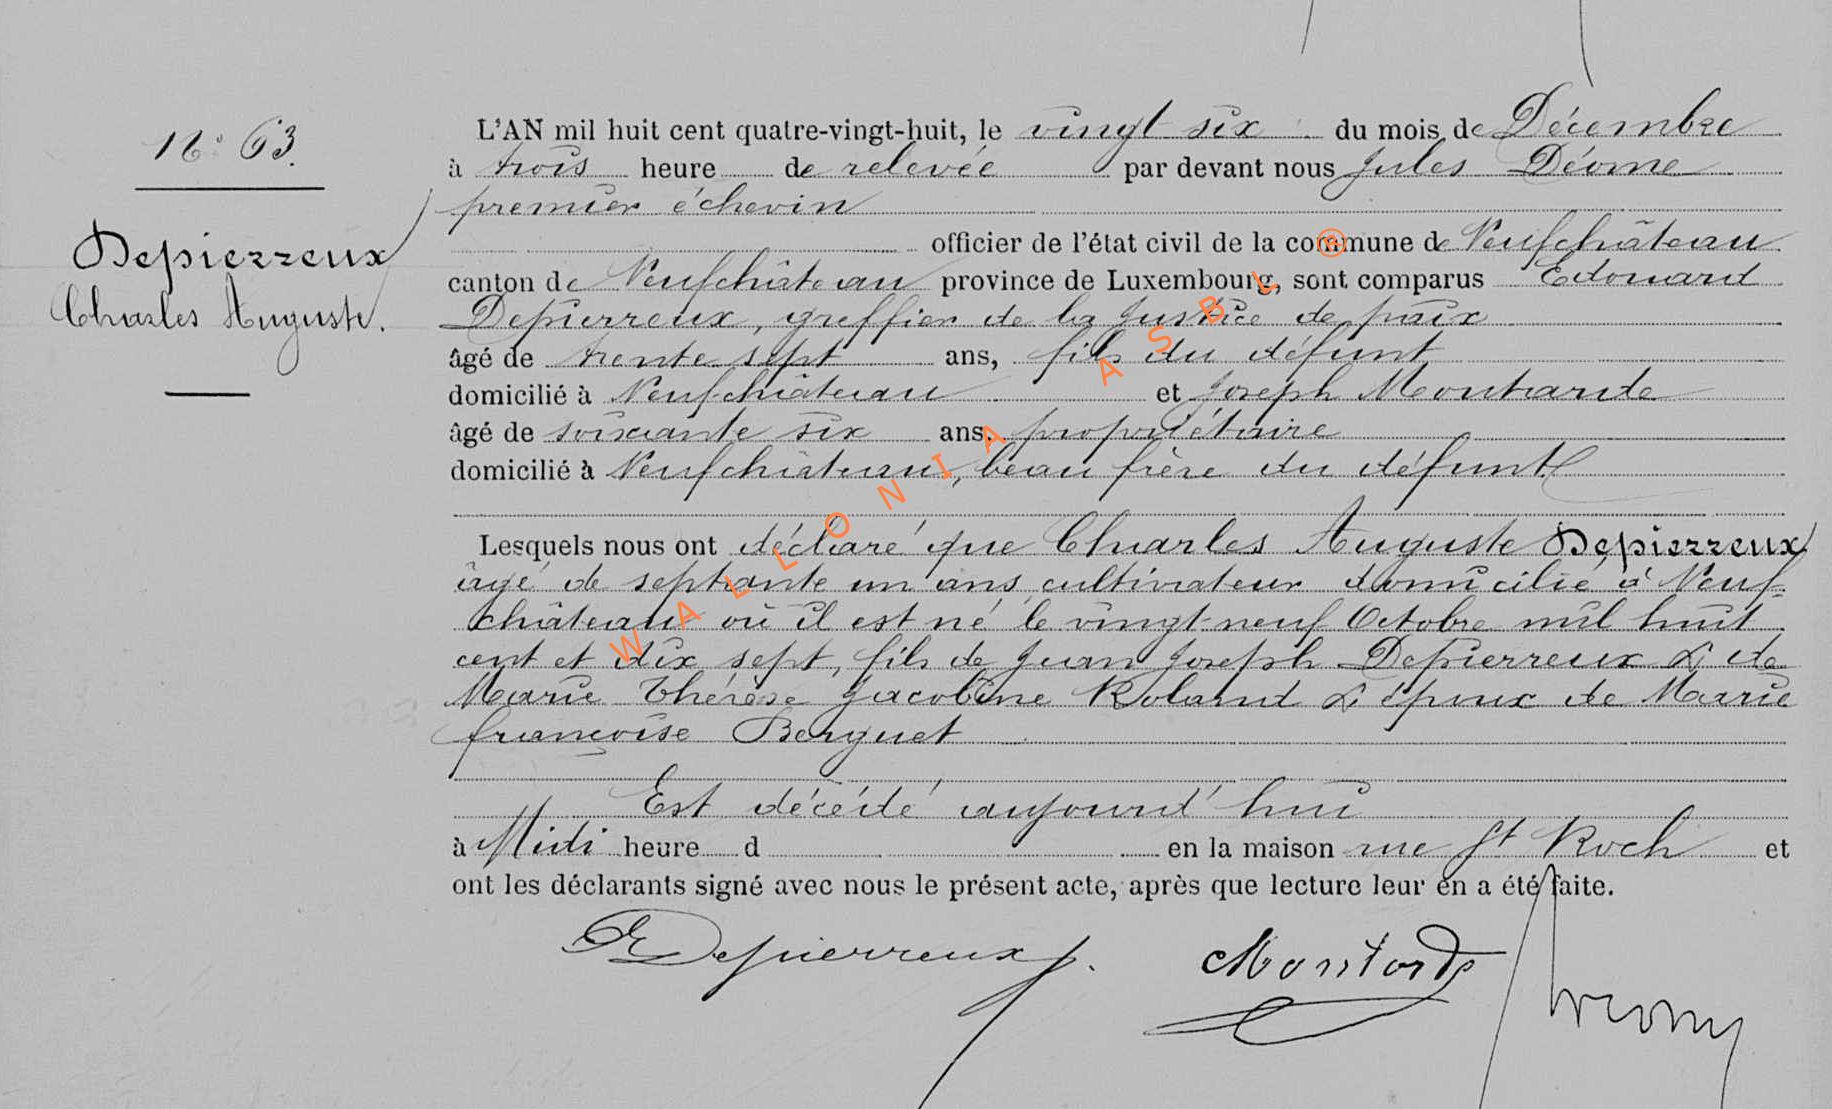 N° 63.
Depierreux
Charles Auguste.
L'AN mil huit cent quatre-vingt-huit, le vingt six du mois de Décembre
à trois heure de relevée par devant nous Jules Déome
premier échevin
officier de l'état civil de la commune de Neufchâteau
canton de Neufchâteau province de Luxembourg, sont comparus Edouard
Depierreux, greffier de la Justice de paix
âgé de trente sept ans, fils du défunt
domicilié à Neufchâteau et Joseph
âgé de soixante six ans, propriétaire
domicilié à Neufchâteau, beau frère du défunt
Lesquels nous ont déclaré que Charles Auguste Depierreux
âgé de septante un ans, cultivateur domicilié à Neuf-
château où il est né le vingt-neuf Octobre mil huit
cent et dix sept, fils de Jean Joseph Depierreux & de
Marie Thérèse Jacobine Roland & époux de Marie
françoise Berguet
Est décédé aujourd'hui
à Midi heure d en la maison rue St Roch et
ont les déclarants signé avec nous le présent acte, après que lecture leur en a été faite.
E Depierreux
WALLONIA ASBL ®